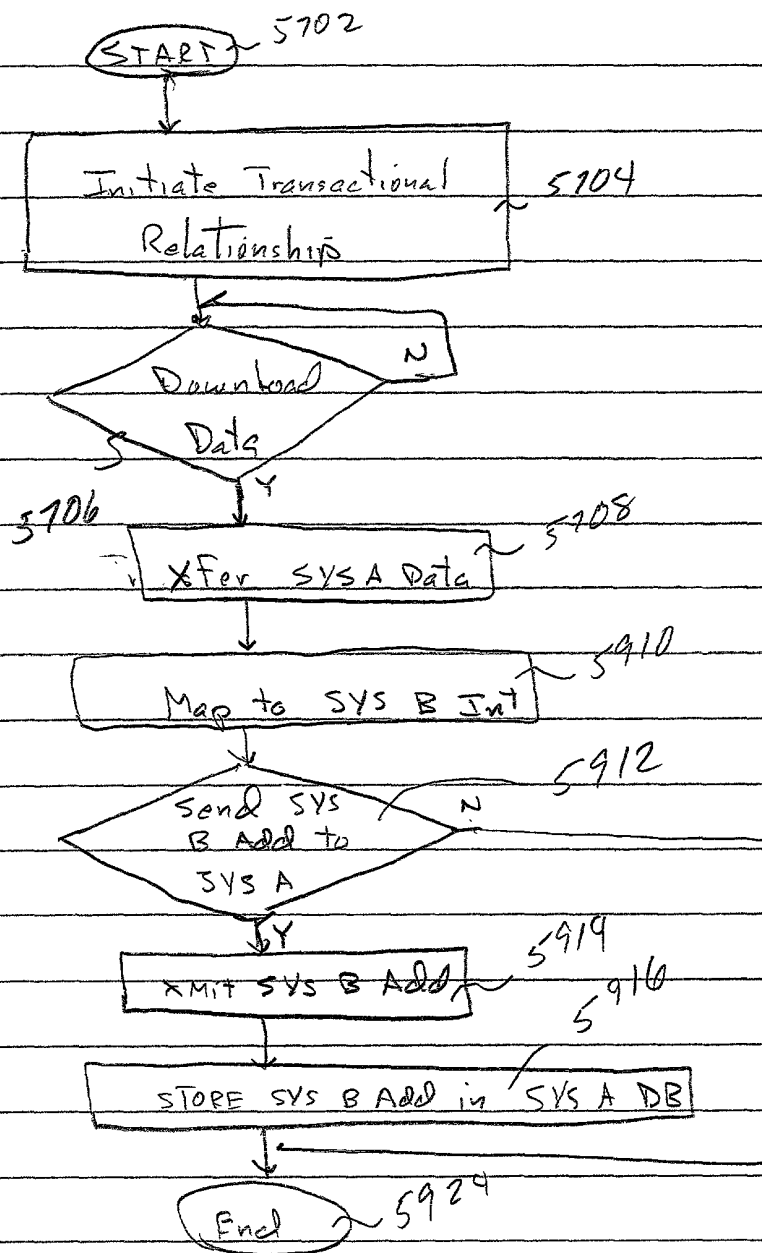 START 5702
Initiate Transactional 5704
Relationship
N
Download
Data
Y
5706
5708
XFer SYS A Data
5910
Map to SYS B Int
5912
Send SYS N
B Add to
SYS A
Y
5914
XMit SYS B Add
5916
STORE SYS B Add in SYS A DB
End 5924